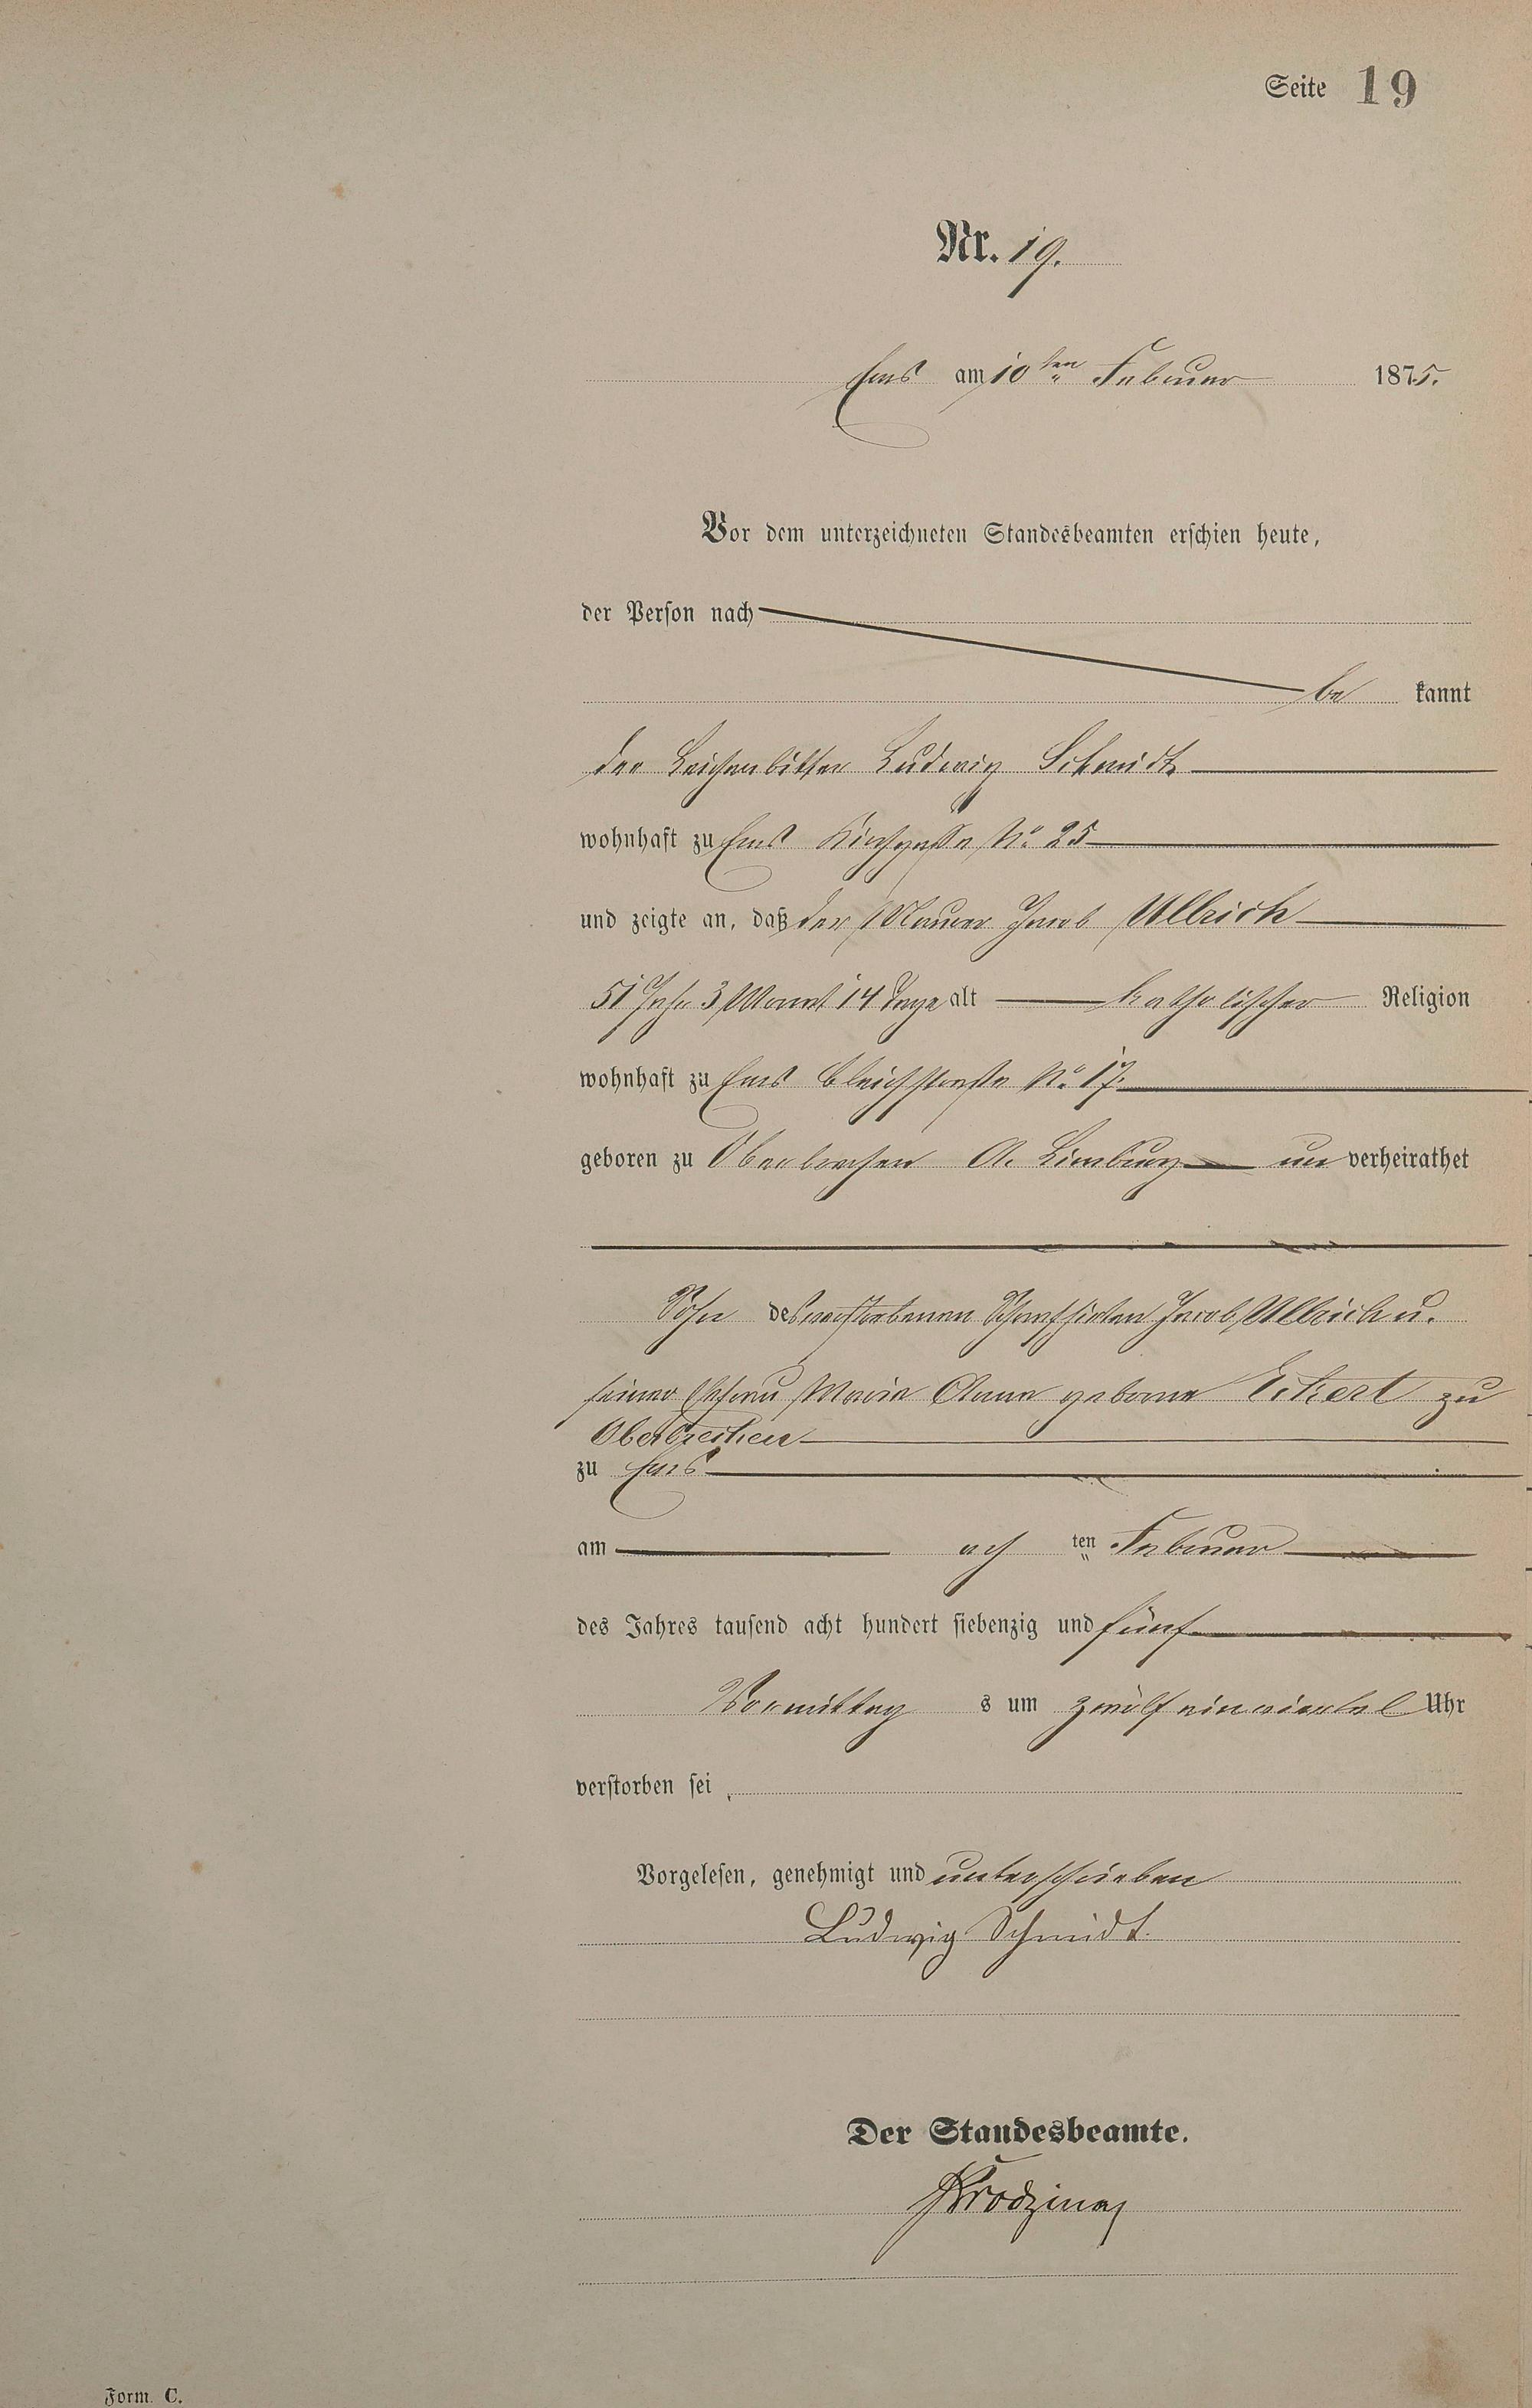 Seite 19
Nr. 19.
Ems am 10ten Februar 1875.
Vor dem unterzeichneten Standesbeamten erschien heute,
der Person nach
be kannt
der Leichenbitter Ludwig Schmidt
wohnhaft zu Ems Kirchgasse No. 25
und zeigte an, daß der Maurer Jacob Ullrich
51 Jahr 3 Monat 14 Tage alt katholischer Religion
wohnhaft zu Ems Bleichstraße No. 17.
geboren zu Oberbrechen A. Limburg un verheirathet
Sohn des verstorbenen Schafhirten Jacob Ullrich u.
seiner Ehefrau Maria Anna geborne Eckert zu
Oberbrechen
zu Ems
am ach ten Februar
des Jahres tausend acht hundert siebenzig und fünf
Vormittag s um zwölf einviertel Uhr
verstorben sei.
Vorgelesen, genehmigt und unterschrieben
Ludwig Schmidt.
Der Standesbeamte.
Form. C.